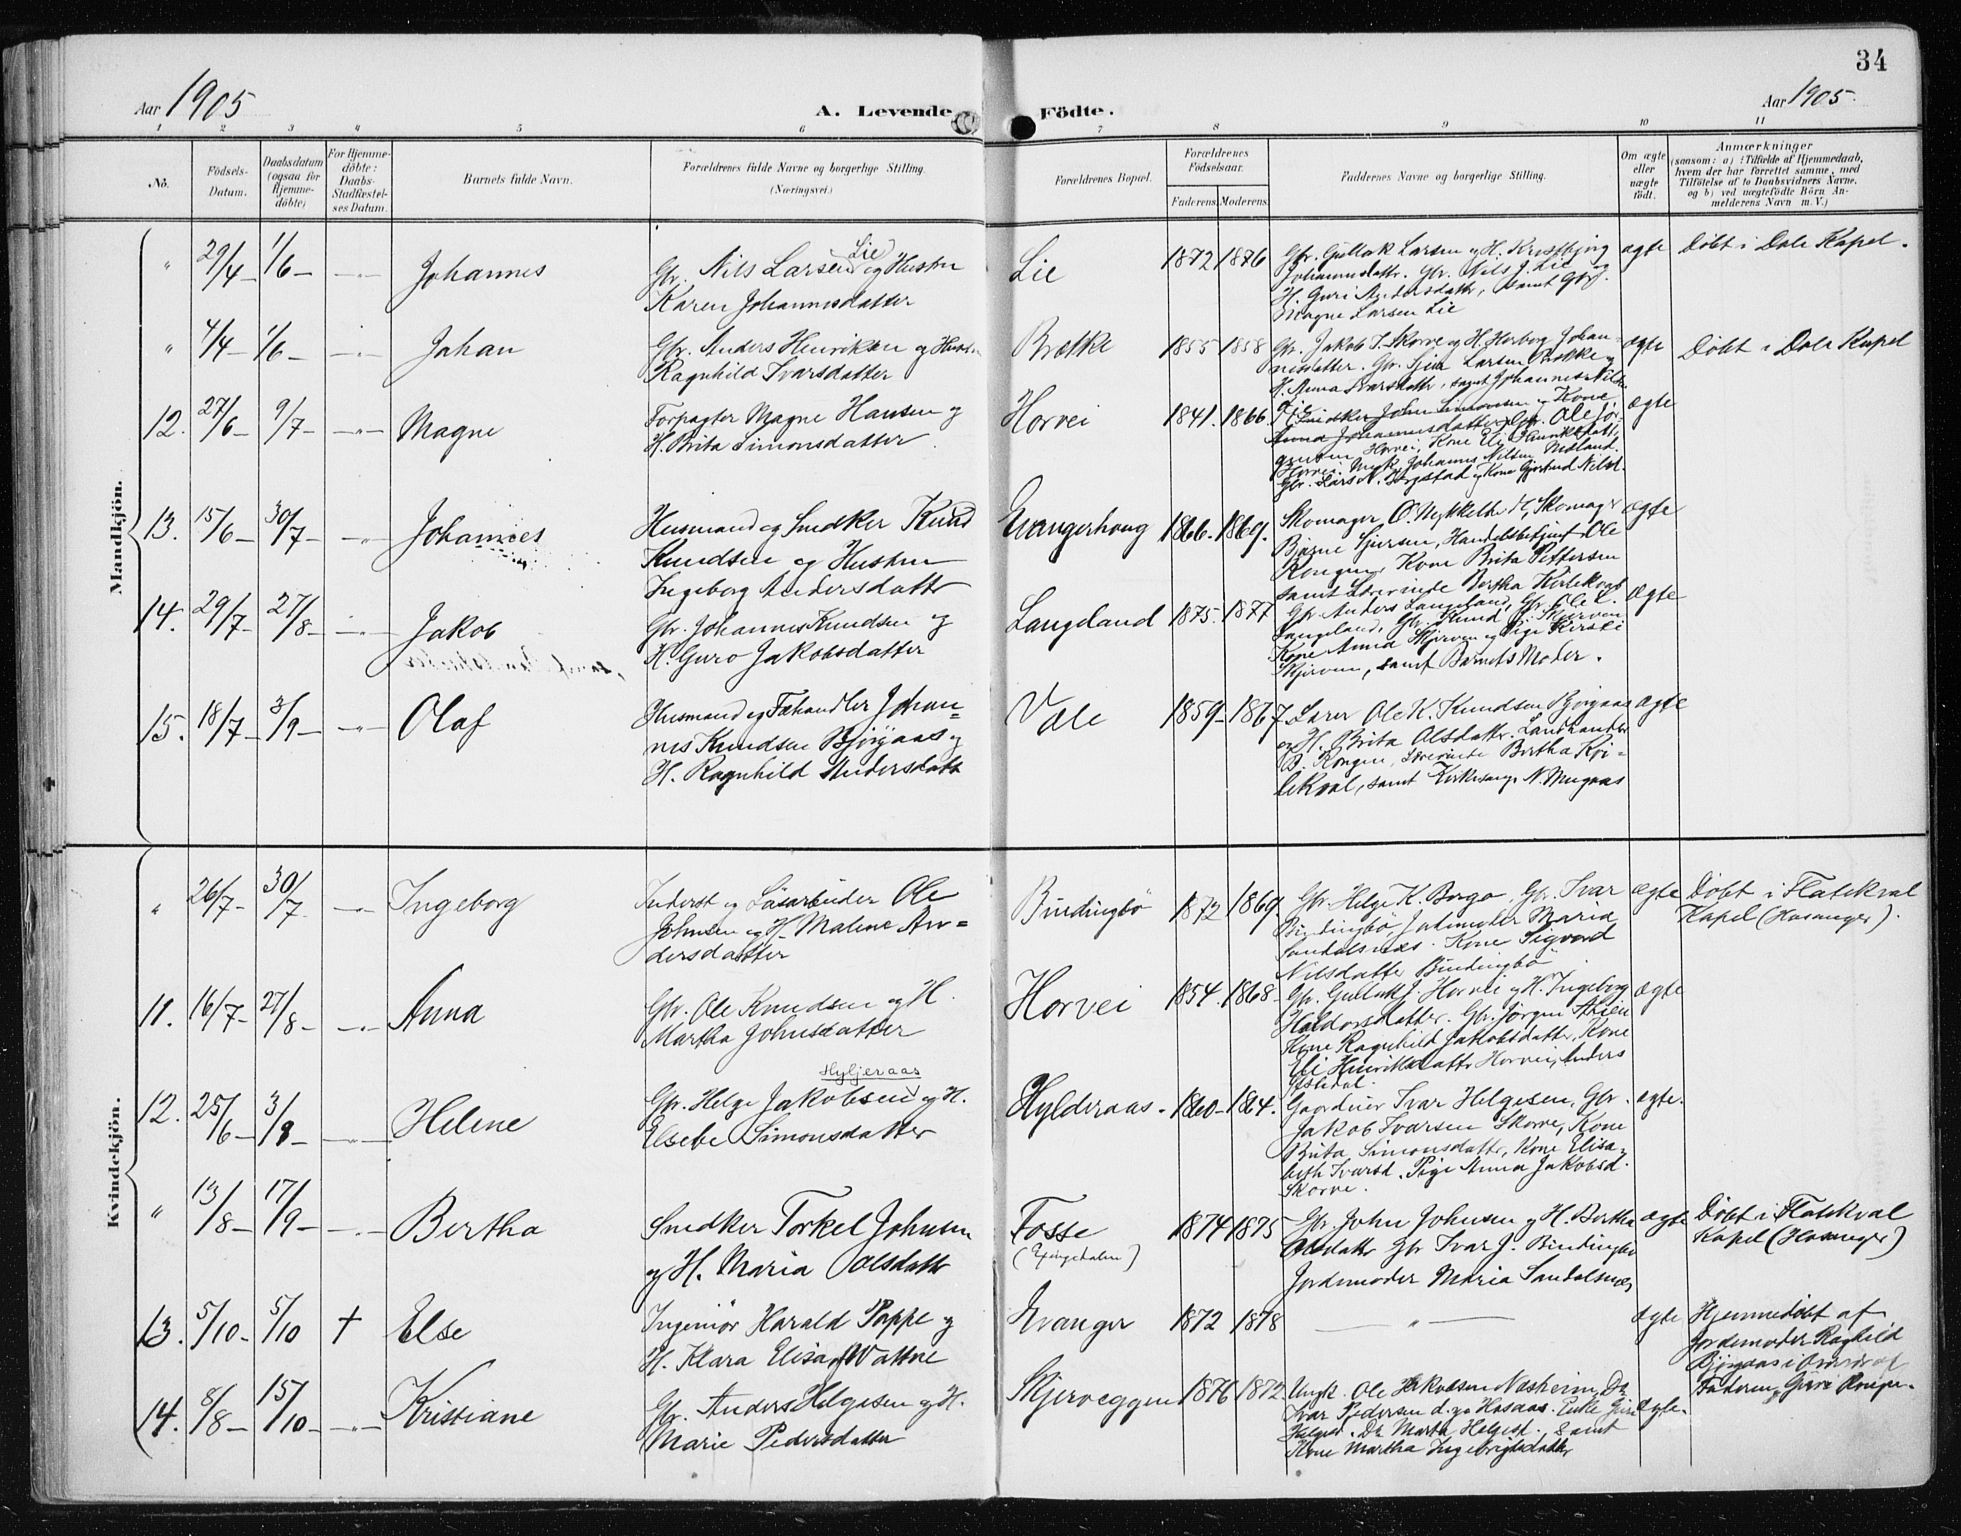 34
Aar 1905
A. Levende Födte.
Aar 1905.
1 2 3 4 5 6 7 8 9 10 11
No.
Födsels-
Datum.
Daabsdatum
(ogsaa for
Hjemme-
döbte)
For Hjemme-
döbte:
Daabs-
Stadfæstel-
ses Datum.
Barnets fulde Navn.
Forældrenes fulde Navne og borgerlige Stilling.
(Næringsvei.)
Forældrenes Bopæl.
Forældrenes
Födselsaar.
Faderens. Moderens.
Faddernes Navne og borgerlige Stilling.
Om ægte
eller
uægte
födt.
Anmærkninger
(saasom: a) i Tilfælde af Hjemmedaab,
hvem der har forrettet samme, med
Tilföielse af to Daabsvidners Navne,
og b) ved uægtefödte Börn An-
melderens Navn m. V.)
Mandkjön.
" 29/4 – 1/6 – –"– Johannes
Gbr. Nils Larsen Lie og Hustru
Karen Johannesdatter
Lie 1872 1876
Gbr. Gullak Larsen og H. Kristbjørg
Johannesdattr. Gbr. Nils J. Lie og
H. Guri Andersdatter, samt Gbr.
Magne Larsen Lie
ægte
Døbt i Dale Kapel.
" 4/4 – 1/6 – –"– Johan
Gbr. Anders Henriksen og Hustru
Ragnhild Ivarsdatter
Brække 1855 1858
Gbr. Jakob I. Skorve og H. Herborg Johan-
nesdatter. Gbr. Larsen Brække og
H. Anna Ivarsdattr, samt Johannes Nils
ægte
Døbt i Dale Kapel
12. 27/6 – 9/7 – –"– Magne
Forpagter Magne Hansen og
H. Brita Simonsdatter.
Horvei 1841. 1866
Snedker John Simonsen og Kone
Anna Johannesdatter, Gbr. Ole Jør-
gensen Horvei, Kone Eli Henriksdattr
Horvei. Ungk. Johannes Nilsen Nedland.
Gbr. Lars N. Bergstad og Kone Gjertrud Nilsd.
ægte
13. 15/6 – 30/7 – –"– Johannes
Husmand og Snedker Knud
Knudsen og Hustru
Ingeborg Andersdattr
Evangerhaug 1866. 1869.
Skomager O. Mykkeltv. H, Skomager
Bjarne Sjursen, Handelsbetjent Ole
Kongen, Kone Brita Pettersen
samt Lærerinde Bertha Kirlekval
ægte
14. 29/7 – 27/8 – –"– Jakob
Gbr. Johannes Knudsen og
H. Guro Jakobsdatter
Langeland 1875. 1877
Gbr. Anders Langeland, Gbr. Ole L.
Langeland, Gbr. Knud J. Skjerven
Kone Anna Skjerven og Pige Kirsti
Skjerven, samt Barnets Moder.
ægte
15. 18/7 – 3/9 – –"– Olaf
Husmand og Fæhandler Johan=
nes Knudsen Bjørgaas og
H. Ragnhild Andersdattr
Væle 1859 – 1867
Lærer Ole K. Knudsen Bjørgaas
og H. Brita Olsdattr. Landhandler
B. Kongen, Lærerinde Bertha Kji-
lekval, samt Kirkesang. N. Mugaas
ægte
Kvindekjön.
" 26/7 – 30/7 – –"– Ingeborg
Inderst og Løsarbeider Ole
Johnsen og H. Malene An=
dersdatter
Bindingbö 1872 1869.
Gbr. Helge K. Bergo. Gbr. Ivar
Bindingbö, Jordmoder Maria
Sandalsnæs. Kone Sigvord
Nilsdatter Bindingbö
ægte
Døbt i Flatekval
Kapel (Hosanger).
11. 16/7 – 27/8 – –"– Anna
Gbr. Ole Knudsen og H.
Martha Johnsdatter
Horvei 1854. 1868
Gbr. Gullak J. Horvei og H. Ingeborg
Haldorsdatter. Gbr. Jørgen
Kone Ragnhild Jakobsdatter, Kone
Eli Henriksdattr Horvei, Anders
ægte
12. 25/6 – 3/9 – –"– Helene
Hyljeraas
Gbr. Helge Jakobsen og H.
Elsebe Simonsdatter
Hylderaas – 1860 – 1864.
Gaardeier Ivar Helgesen, Gbr.
Jakob Ivarsen Skorve, Kone
Brita Simonsdattr, Kone Elisa-
beth Ivarsd. Pige Anna Jakobsd.
Skorve.
ægte.
" 13/8 – 17/9 – –"– Bertha
Snedker Torkel Johnsen
og H. Maria Olsdattr
Fosse
(Exingedalen)
1874 1875
Gbr. John Johnsen og H. Bertha
Olsdattr Gbr Ivar J. Bindingbö
Jordemoder Maria Sandalsnæs
ægte
Døbt i Flatekval
Kapel (Hosanger)
13. 5/10 – 5/10 + Else
Ingeniör Harald Poppe og
H. Klara Elisa Wattne
Evanger 1872 1878
— " —
ægte
Hjemmedöbt af
Jordemoder Raghild
Bjørgaas i Overvær af
Faderen og Guri Kongen.
14. 8/8 – 15/10 – –"– Kristiane
Gbr. Anders Helgesen og H.
Marie Pedersdatter
Skjerveggen 1876 1872
Ungk. Ole Jakobsen Næsheim, Do
Ivar Pedersen d.y. Hosaas. Enke Guri
Helgesd. Do Martha Helgesd., samt
Kone Martha Ingebrigtsdatter
ægte.